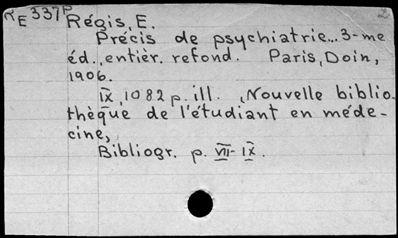 RE337P Régis, E.
Précis de psychiatrie... 3-me
éd., entièr. refond. Paris, Doin,
1906.
IX, 1082 p. ill. (Nouvelle biblio-
thèque de l'étudiant en méde-
cine,
Bibliogr. p. VII-IX.